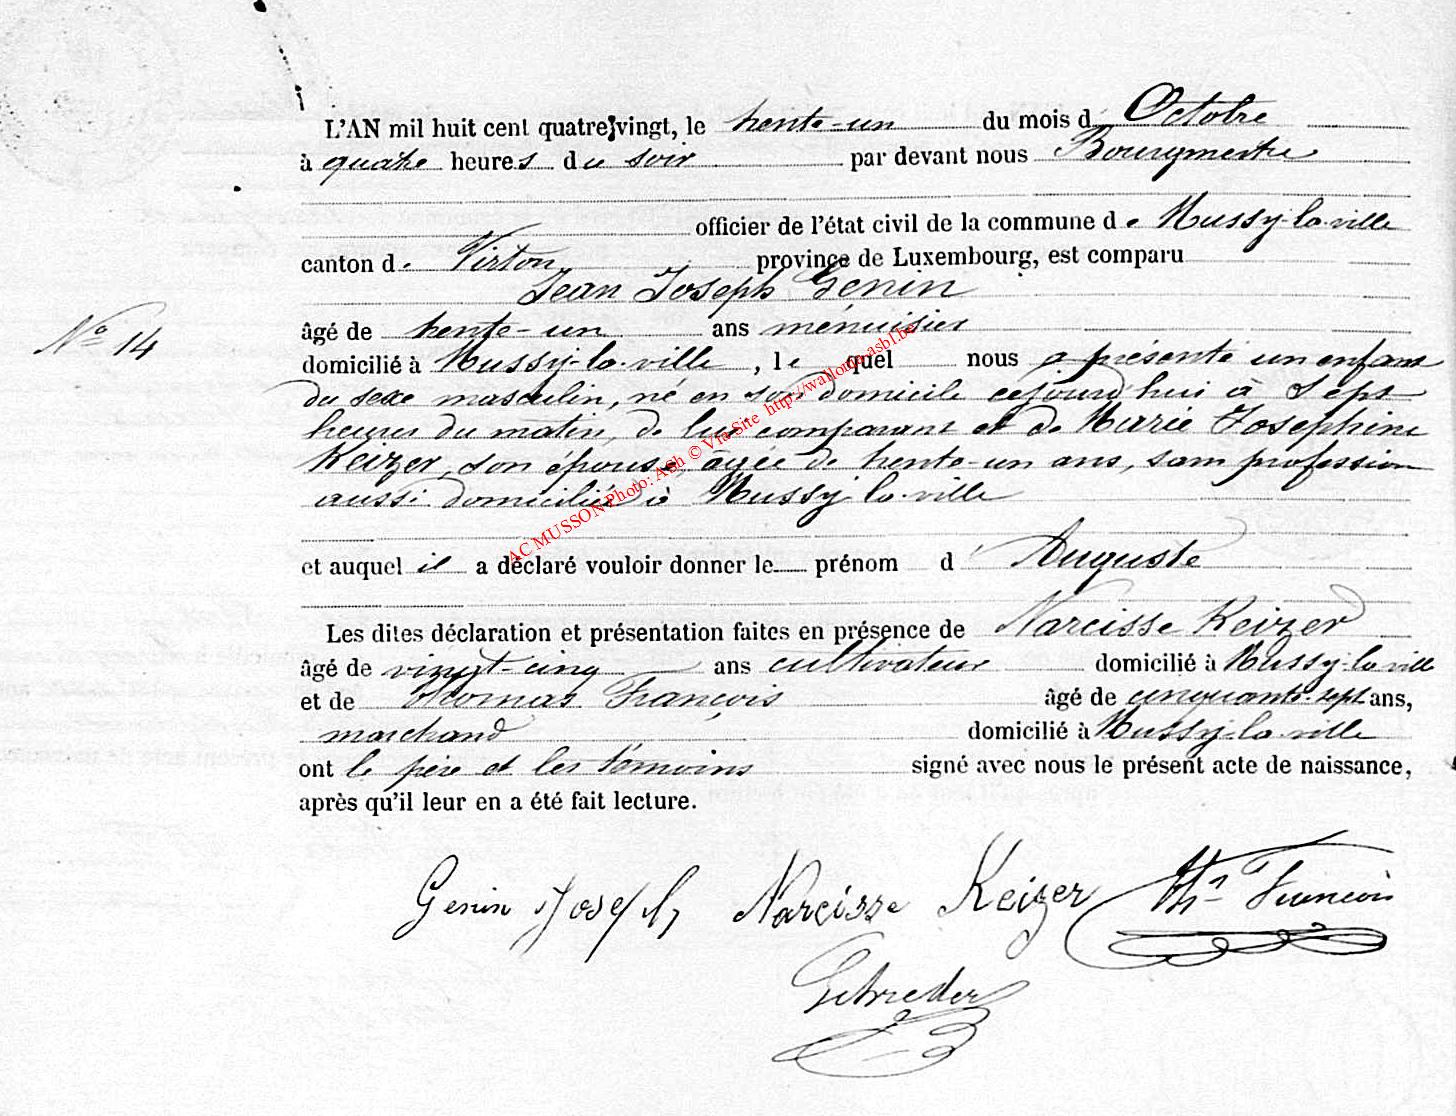 L'AN mil huit cent quatre-vingt, le trente-un du mois d'Octobre
à quatre heures du soir par devant nous Bourgmestre
officier de l'état civil de la commune de Mussy-la-ville
canton de Virton province de Luxembourg, est comparu
Jean Joseph Genin
âgé de trente-un ans ménuisier
N° 14
domicilié à Mussy-la-ville, lequel nous a présenté un enfant
du sexe masculin, né en son domicile cejourd'hui à sept
heures du matin, de lui comparant et de Marie Josephine
Keizer, son épouse, âgée de trente-un ans, sans profession
aussi domiciliée à Mussy-la-ville
et auquel il a déclaré vouloir donner le prénom d'Auguste
Les dites déclaration et présentation faites en présence de Narcisse Keizer
âgé de vingt-cinq ans cultivateur domicilié à Mussy-la-ville
et de Thomas François âgé de cinquante-sept ans,
marchand domicilié à Mussy-la-ville
ont le père et les témoins signé avec nous le présent acte de naissance,
après qu'il leur en a été fait lecture.
Genin Joseph Narcisse Keizer Th. François
AC MUSSON Photo: Ash © Via Site http://wallonia-asbl.be